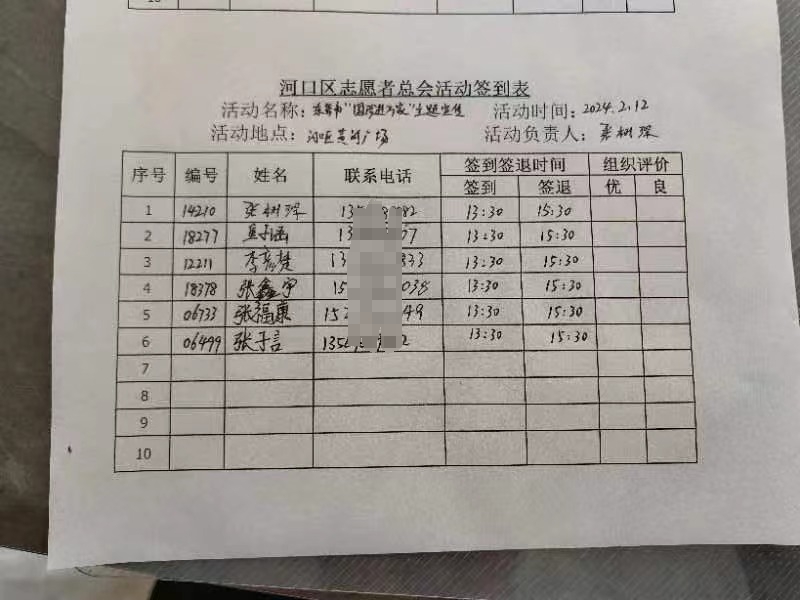 10
河口区志愿者总会活动签到表
活动名称：东营市"国潮进万家"主题宣传 活动时间：2024.2.12
活动地点：河口区黄河广场 活动负责人：张树琛
序号 编号 姓名 联系电话 签到签退时间 组织评价
签到 签退 优 良
1 14210 张树琛 13:30 15:30
2 18277 13:30 15:30
3 12211 李彦梵 13:30 15:30
4 18378 张鑫宇 13:30 15:30
5 06733 张福康 13:30 15:30
6 06499 张予言 13:30 15:30
7
8
9
10